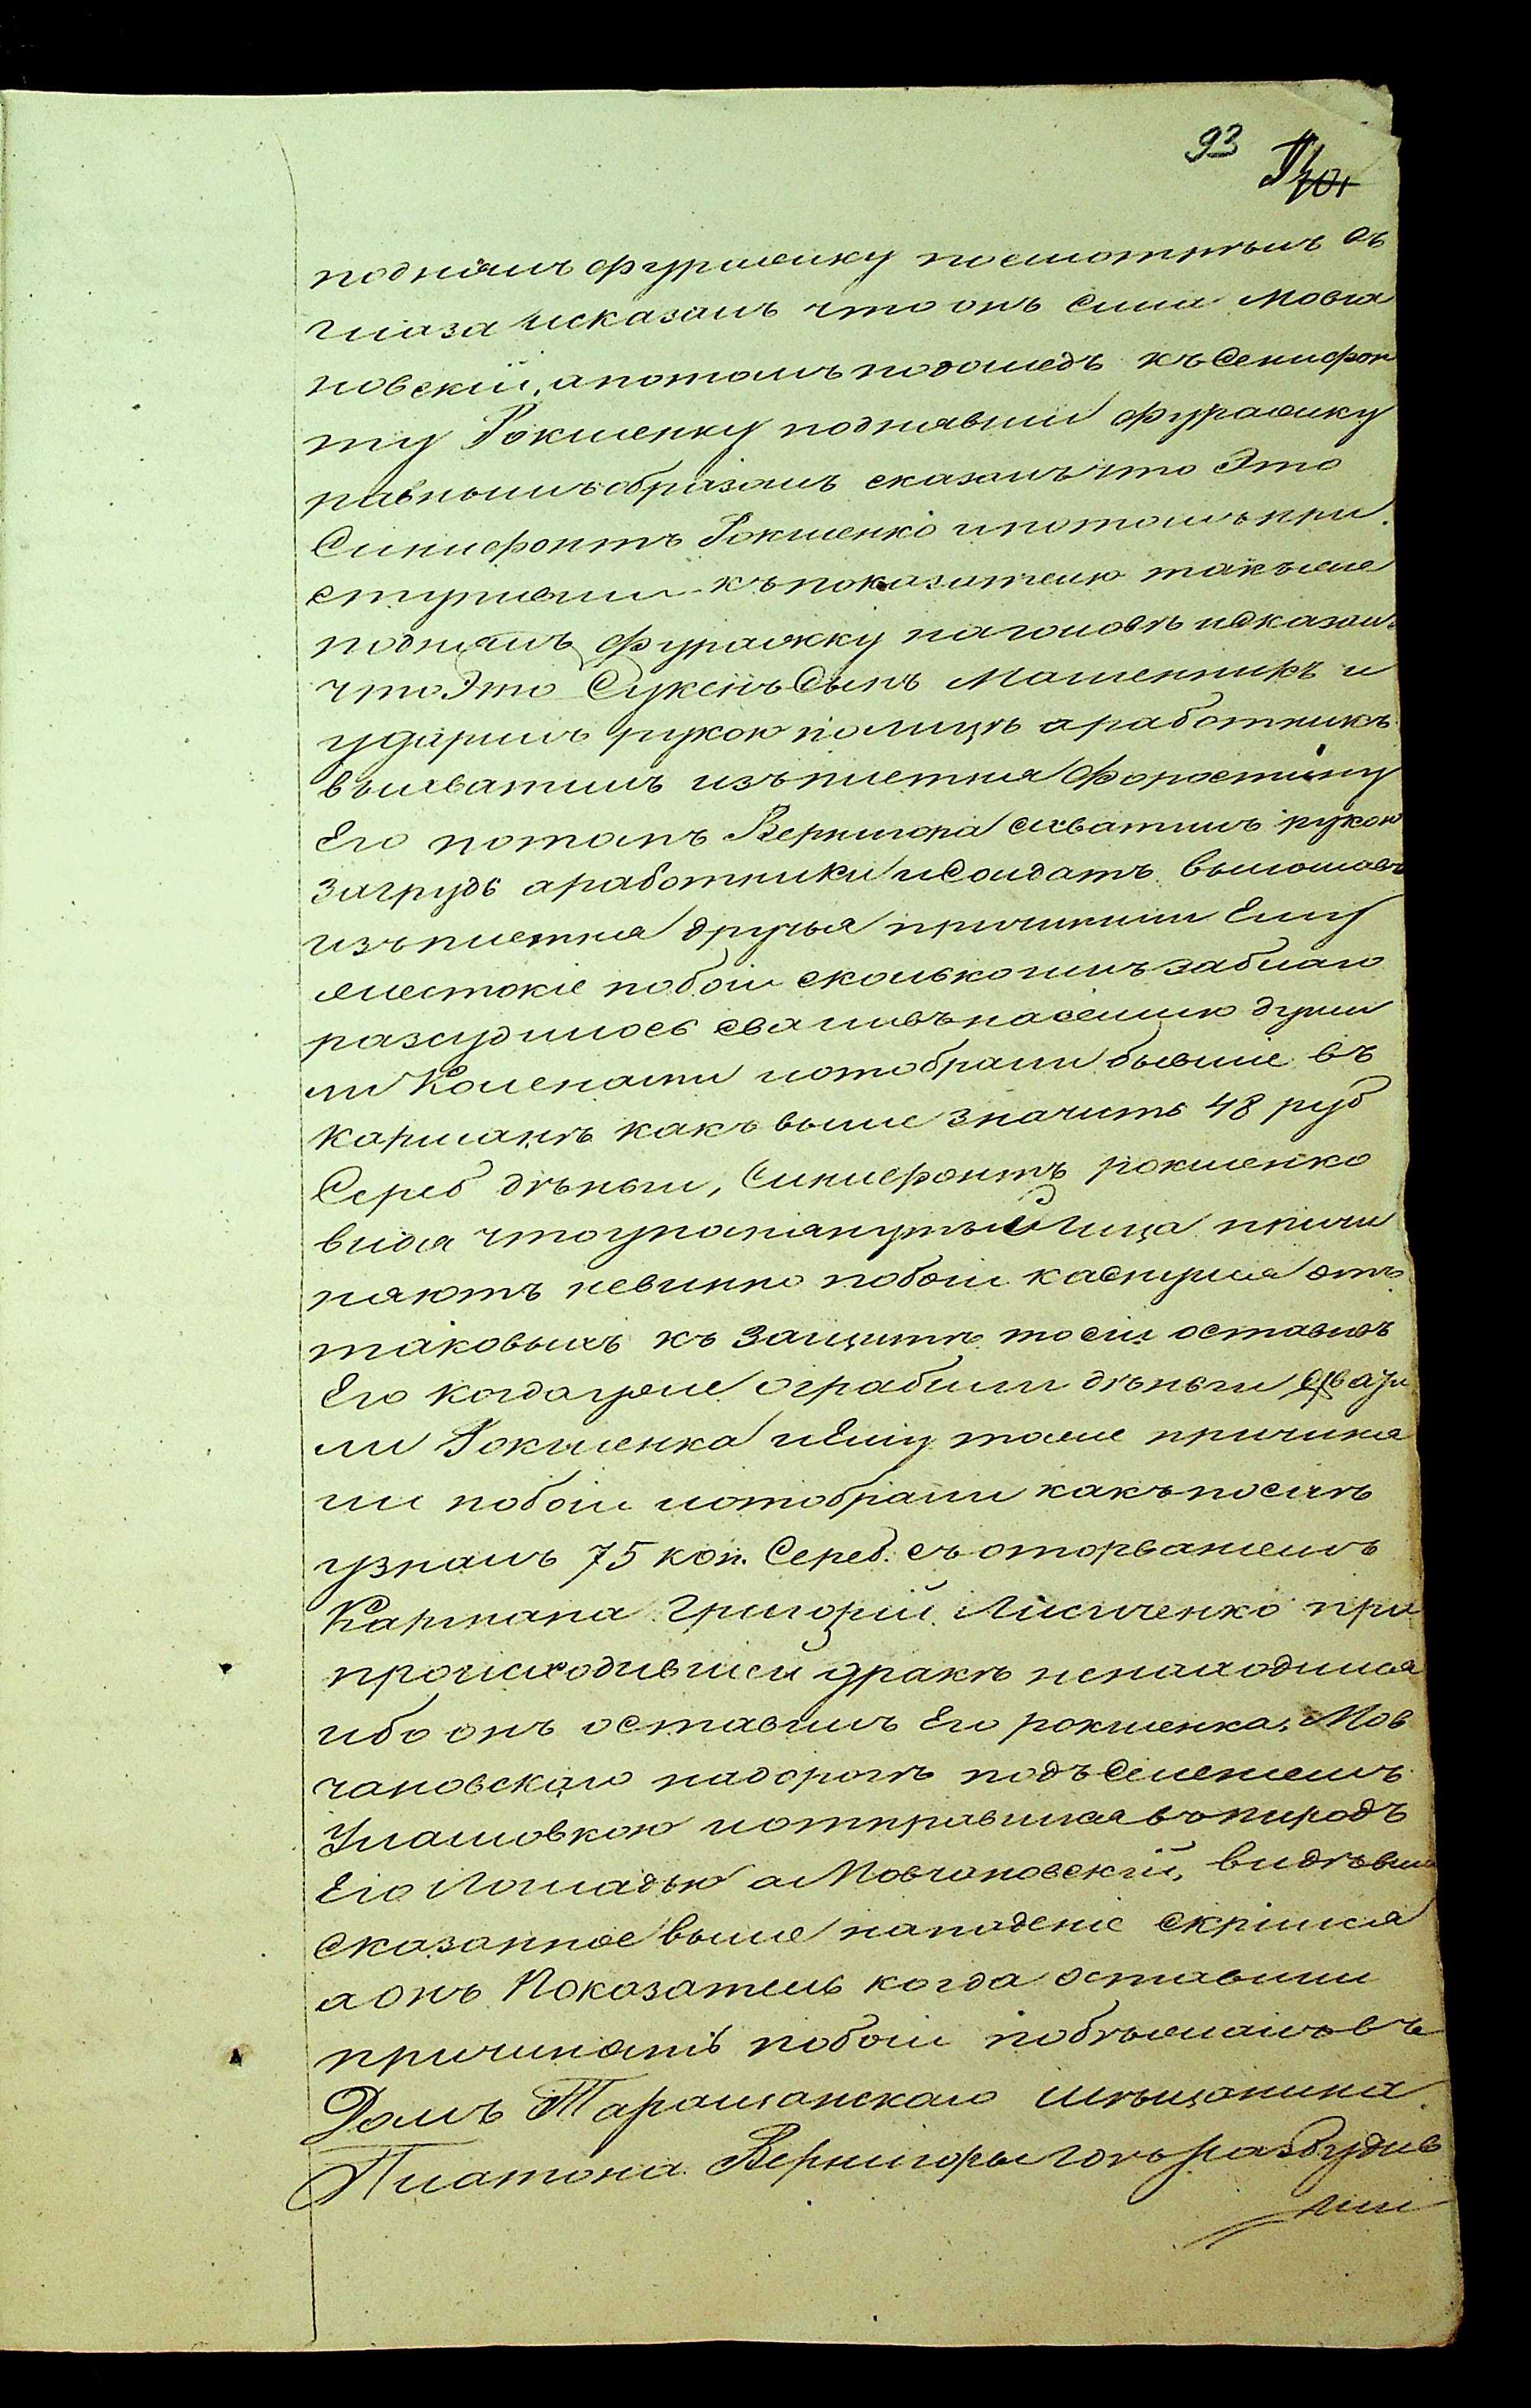 93
101
поднялъ фуражку посмотрѣлъ въ
глаза исказалъ что онъ Сила Мовча
новскій, апотомъ подошедъ къ Сениѳон
ту Рокиенку поднявши фуражку
равнымъ образомъ сказалъ что Это
Синиѳонтъ Рокиенко ипотомъ при
ступивши къ показателю такъже
поднялъ фуражку наголовѣ исказалъ
что Это Сукенъ Сынъ Мошенникъ и
ударилъ рукою полицѣ аработникъ
выхватилъ изъ плетня форостину
Его потомъ Вернигора схватилъ рукою
загрудь аработники иСолдатъ выломавъ
изъ плетня дручья причинили Ему
жестокіе побои сколько имъ заблаго
разсудилось сваливъ наземлю души
ли Коленами иотобрали бывшіе въ
карманѣ какъ выше значитъ 48 руб
Сереб дѣньги, Синиѳонтъ рокиенко
видя что упомянутый лица причи
няютъ невинно побои каснулся отъ
таковыхъ къ Защитѣ то сіи оставивъ
Его когда уже ограбили дѣньги свали
ли Рокиенка иЕму тоже причиня
ли побои иотобрали какъ послѣ
узналъ 75 коп. Сереб. съ оторваніемъ
Кармана Григорій Лисиченко при
происходившей дракѣ ненаходился
ибо онъ оставилъ Его рокиенка, Мов
чановскаго надорогѣ подъ Селеніемъ
Улашовкою иотправился въ пиродъ
Его Лошадью а Мовчановскій, видѣвши
сказанное выше нападеніе скрился
а онъ Показатель когда оставили
причинять побои побѣжалъ въ
Домъ Таращанскаго мѣщанина
Платона Вернигоры гдѣ разбудив
ши